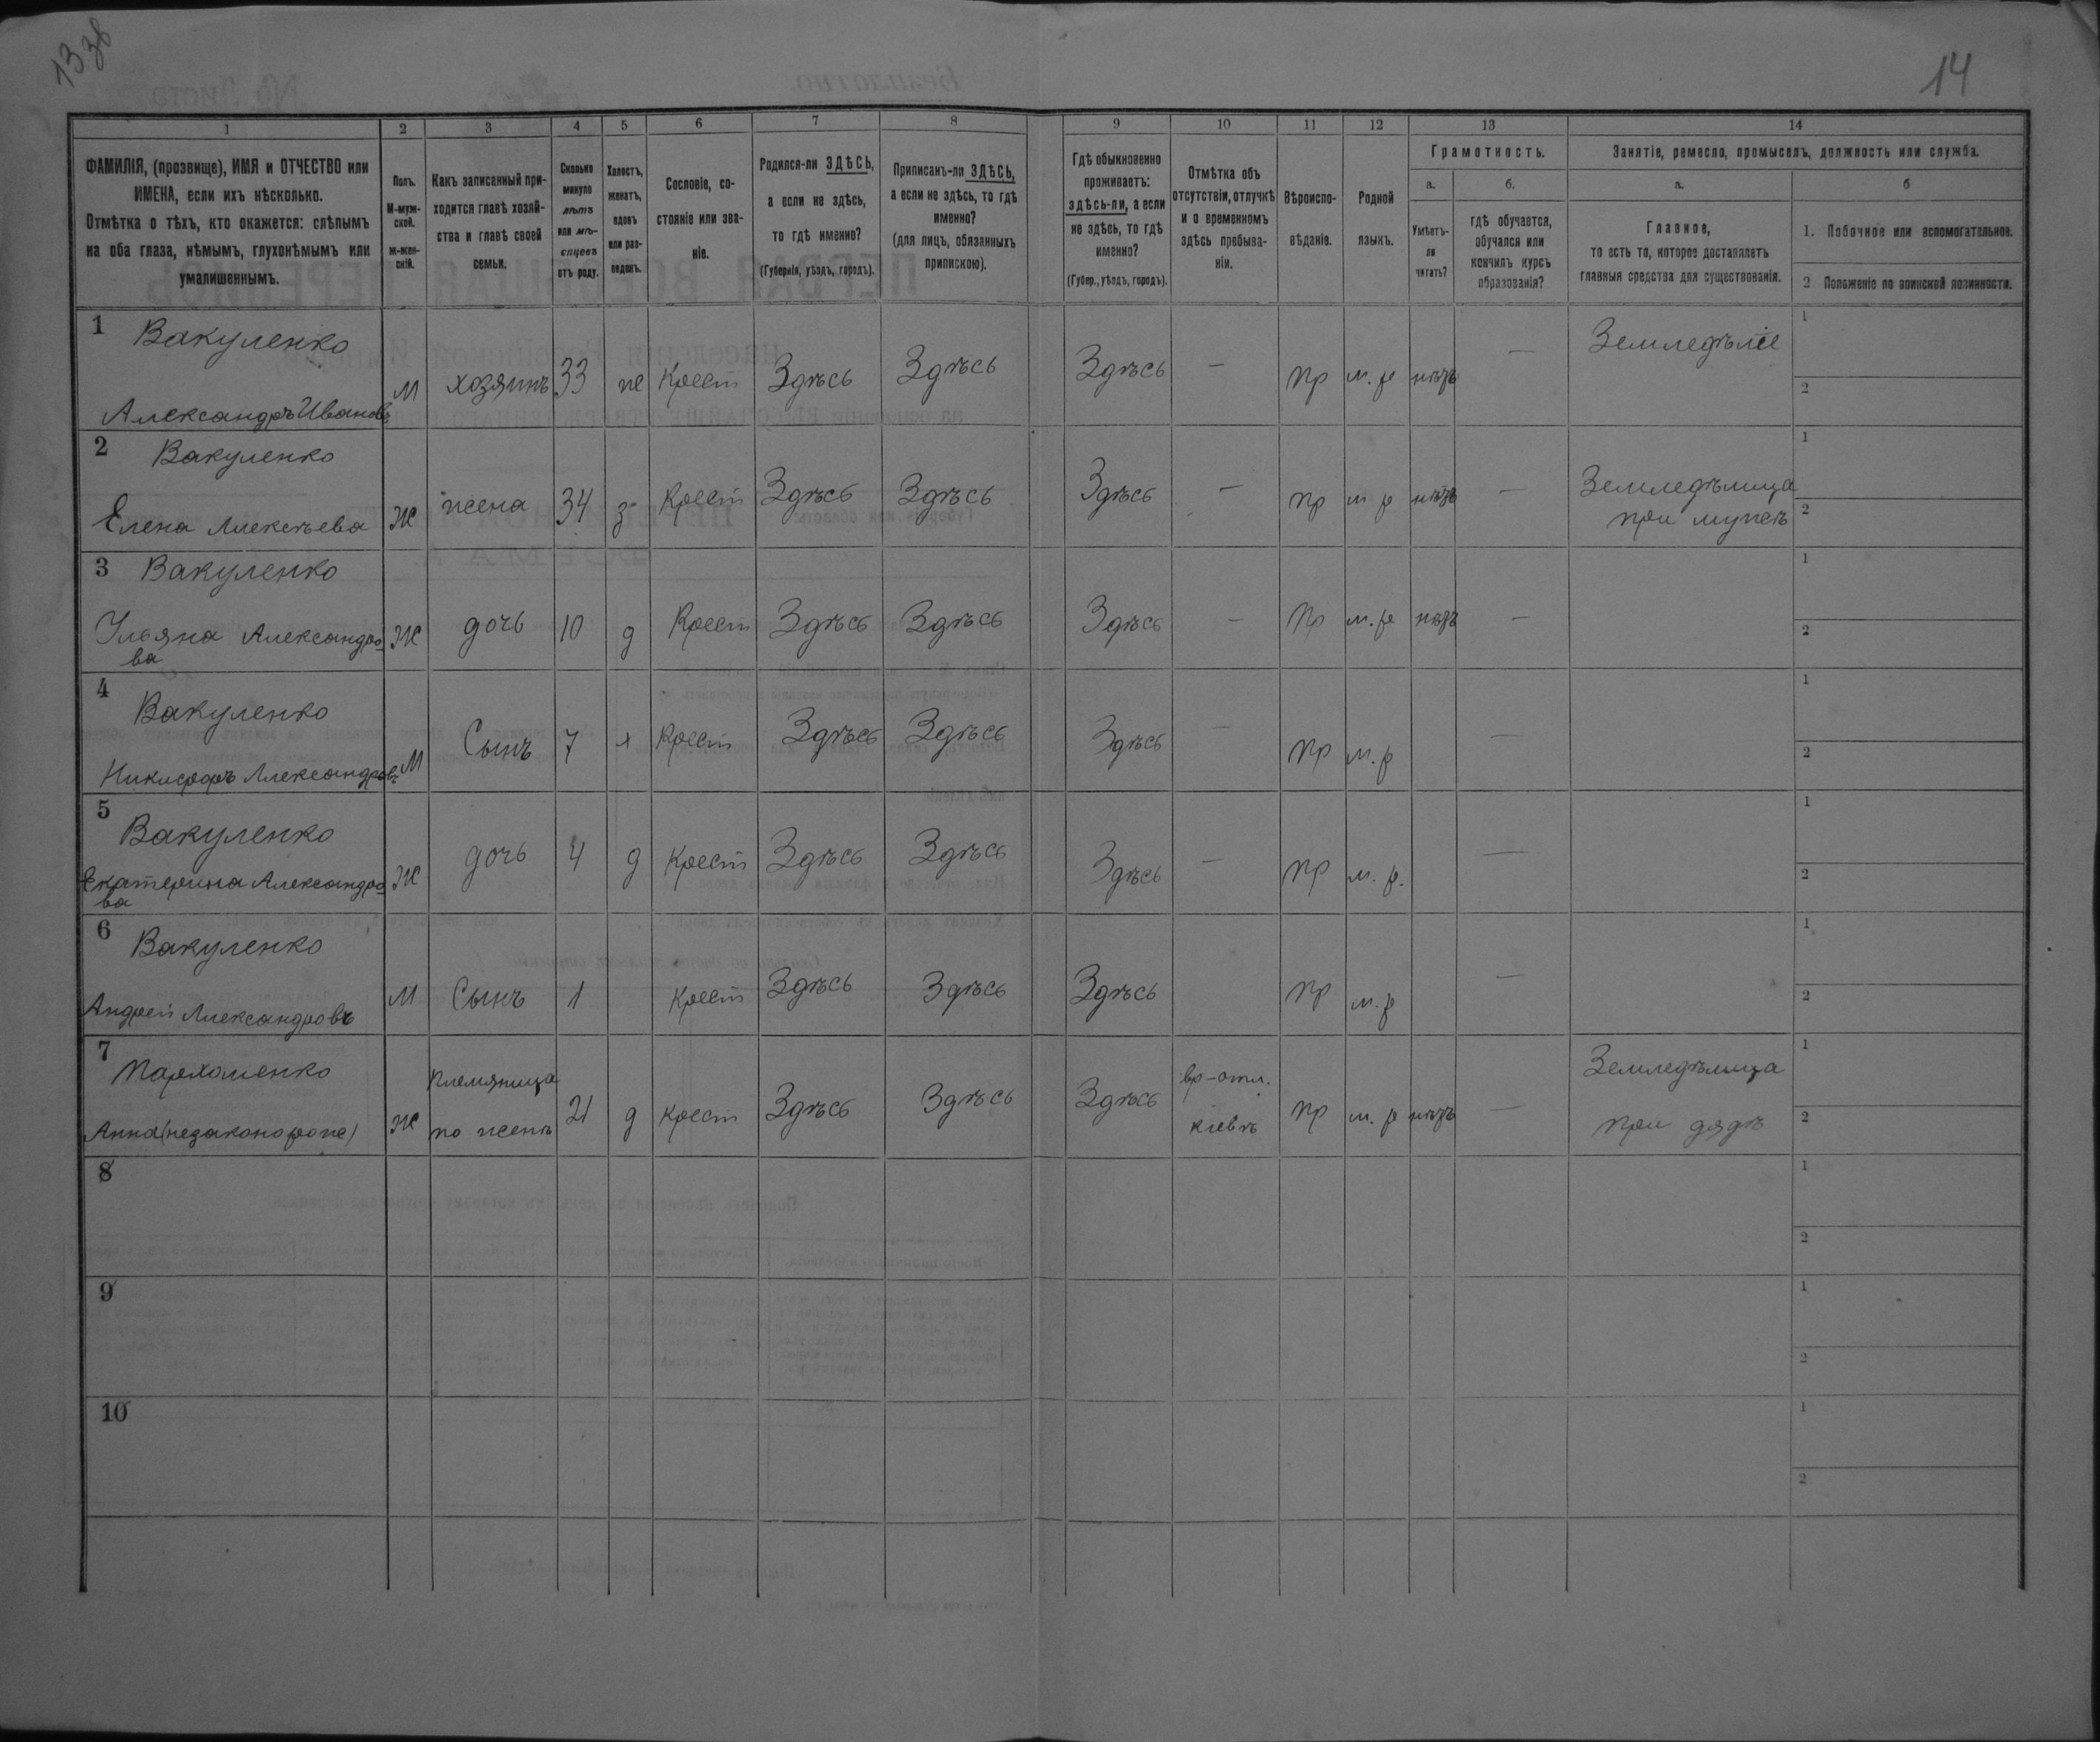 13 зв
14
1 2 3 4 5 6 7 8 9 10 11 12 13 14
ФАМИЛІЯ, (прозвище), ИМЯ и ОТЧЕСТВО или
ИМЕНА, если ихъ нѣсколько.
Отмѣтка о тѣхъ, кто окажется: слѣпымъ
на оба глаза, нѣмымъ, глухонѣмымъ или
умалишеннымъ.
Полъ.
М-муж-
ской.
ж-жен-
скій.
Какъ записанный при-
ходится главѣ хозяй-
ства и главѣ своей
семьи.
Сколько
минуло
лѣтъ
или мѣ-
сяцевъ
отъ роду.
Холостъ,
женатъ,
вдовъ
или раз-
веденъ.
Сословіе, со-
стояніе или зва-
ніе.
Родился-ли ЗДѢСЬ,
а если не здѣсь,
то гдѣ именно?
(Губернія, уѣздъ, городъ).
Приписанъ-ли ЗДѢСЬ,
а если не здѣсь, то гдѣ
именно?
(для лицъ, обязанныхъ
припискою).
Гдѣ обыкновенно
проживаетъ:
здѣсь-ли, а если
не здѣсь, то гдѣ
именно?
(Губер., уѣздъ, городъ).
Отмѣтка объ
отсутствіи, отлучкѣ
и о временномъ
здѣсь пребыва-
ніи.
Вѣроиспо-
вѣданіе.
Родной
языкъ.
Грамотность.
а.
Умѣетъ-
ли
читать?
б.
гдѣ обучается,
обучался или
кончилъ курсъ
образованія?
Занятіе, ремесло, промыселъ, должность или служба.
а.
Главное,
то есть то, которое доставляетъ
главныя средства для существованія.
б
1. Побочное или вспомогательное.
2 Положеніе по воинской повинности.
1 Вакуленко
Александръ Ивановъ
м хозяинъ 33 же Крест Здѣсь Здѣсь Здѣсь — пр м. р нѣтъ — Земледѣліе
1
2
2 Вакуленко
Елена Алексѣева
ж жена 34 з Крест Здѣсь Здѣсь Здѣсь — пр м р нѣтъ — Земледѣлица
при мужѣ
1
2
3 Вакуленко
Ульяна Александро
ва
ж дочь 10 д Крест Здѣсь Здѣсь Здѣсь — пр м. р нѣтъ —
1
2
4 Вакуленко
Никифоръ Александров
м Сынъ 7 х Крест Здѣсь Здѣсь Здѣсь — пр м. р —
1
2
5 Вакуленко
Екатерина Александро
ва
ж дочь 4 д Крест Здѣсь Здѣсь Здѣсь — пр м. р. —
1
2
6 Вакуленко
Андрей Александровъ
м Сынъ 1 Крест Здѣсь Здѣсь Здѣсь пр м. р —
1
2
7 Пархоменко
Анна (незаконороже)
ж Племяница
по женѣ
21 д Крест Здѣсь Здѣсь Здѣсь вр-отл.
Кіевъ
пр м. р нѣтъ — Земледѣлица
при дядѣ
1
2
8
1
2
9
1
2
10
1
2